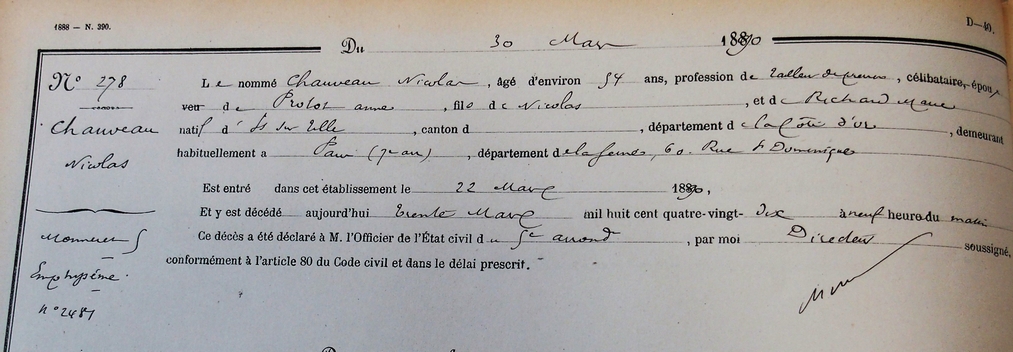 1888 — N. 390.
D—40.
Du 30 Mars 1890
N° 278
Chauveau
Nicolas
Monneret
Emphysème.
n° 2481
Le nommé Chauveau Nicolas, âgé d'environ 54 ans, profession de tailleur de pierres, célibataire, époux
veuf de Protot anne, fils de Nicolas, et de Richard Marie
natif d'Is sur Tille, canton d, département de la Côte d'or, demeurant
habituellement a Paris (7e an), département de la Seine, 60. Rue St Dominique
Est entré dans cet établissement le 22 Mars 1890,
Et y est décédé aujourd'hui trente Mars mil huit cent quatre-vingt-dix à neuf heure du matin
Ce décès a été déclaré à M. l'Officier de l'État civil du 5e arrond, par moi Directeur soussigné,
conformément à l'article 80 du Code civil et dans le délai prescrit.